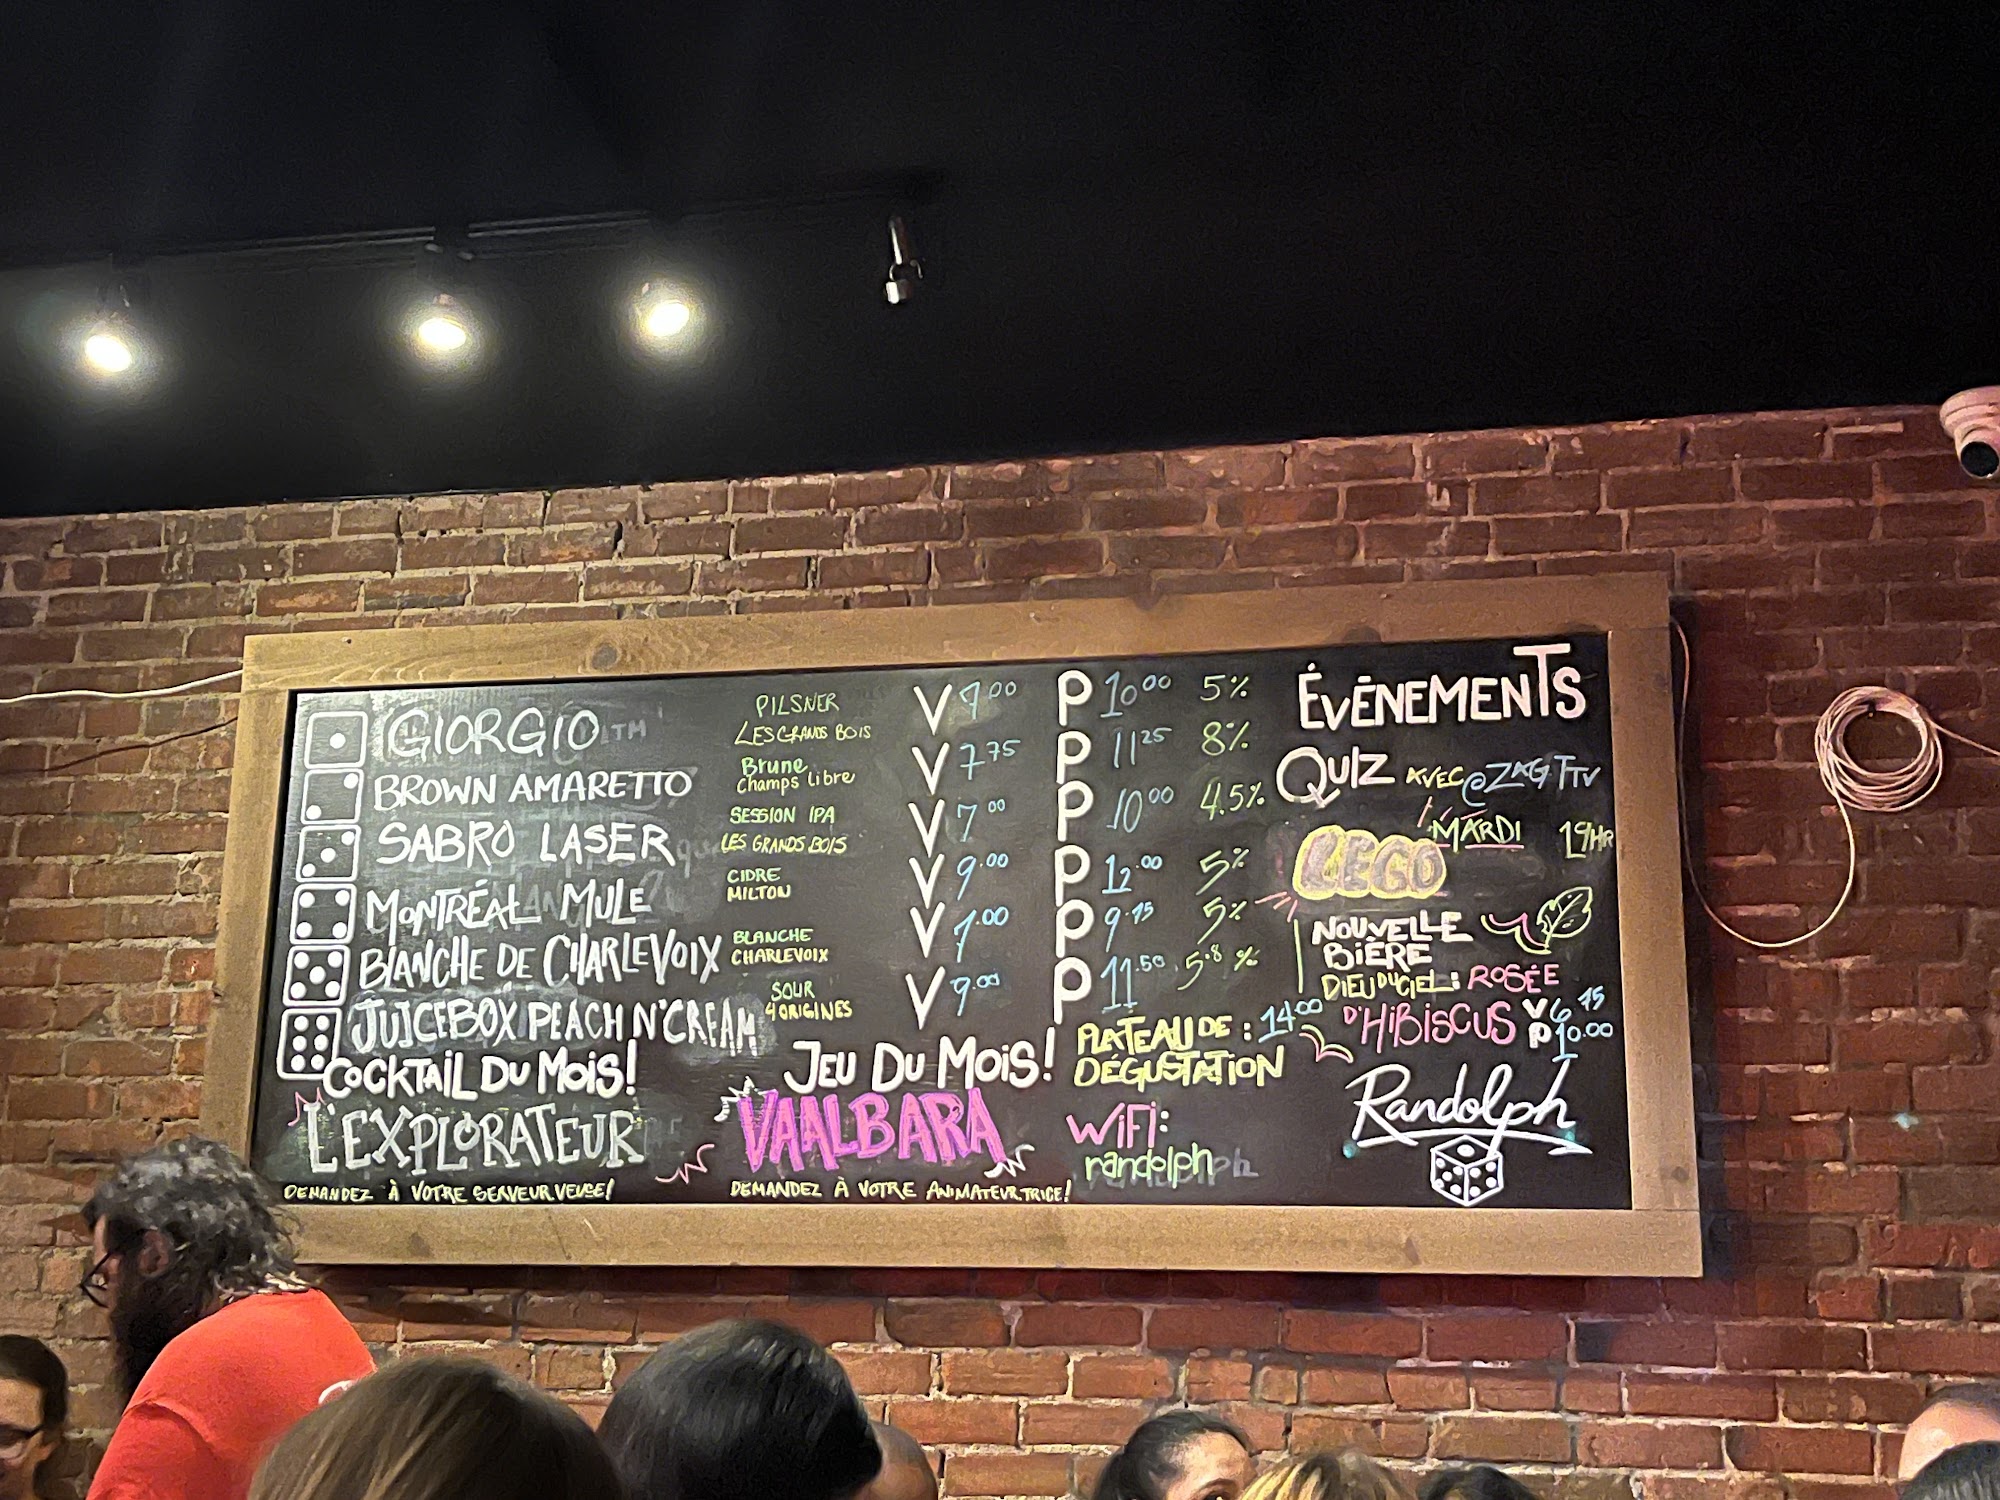 GIORGIO PILSNER LES GRANDS BOIS V 7.00 P 10.00 5%
BROWN AMARETTO Brune Champs Libre V 7.75 P 11.25 8%
SABRO LASER SESSION IPA LES GRANDS BOIS V 7.00 P 10.00 4.5%
MONTRÉAL MULE CIDRE MILTON V 9.00 P 12.00 5%
BLANCHE DE CHARLEVOIX BLANCHE CHARLEVOIX V 7.00 P 9.75 5%
JUICEBOX PEACH N'CREAM SOUR 4 ORIGINES V 9.00 P 11.50 5.8%
COCKTAIL DU MOIS!
L'EXPLORATEUR
DEMANDEZ À VOTRE SERVEUR.VEUSE!
JEU DU MOIS!
VAALBARA
DEMANDEZ À VOTRE ANIMATEUR.TRICE!
PLATEAU DE : 14.00
DÉGUSTATION
WiFi:
randolph
ÉVÉNEMENTS
QUIZ AVEC @ZAGTTV
MARDI 19HR
LEGO
NOUVELLE
BIÈRE
DIEU DU CIEL: ROSÉE
D'HIBISCUS V 6.75
P 10.00
Randolph